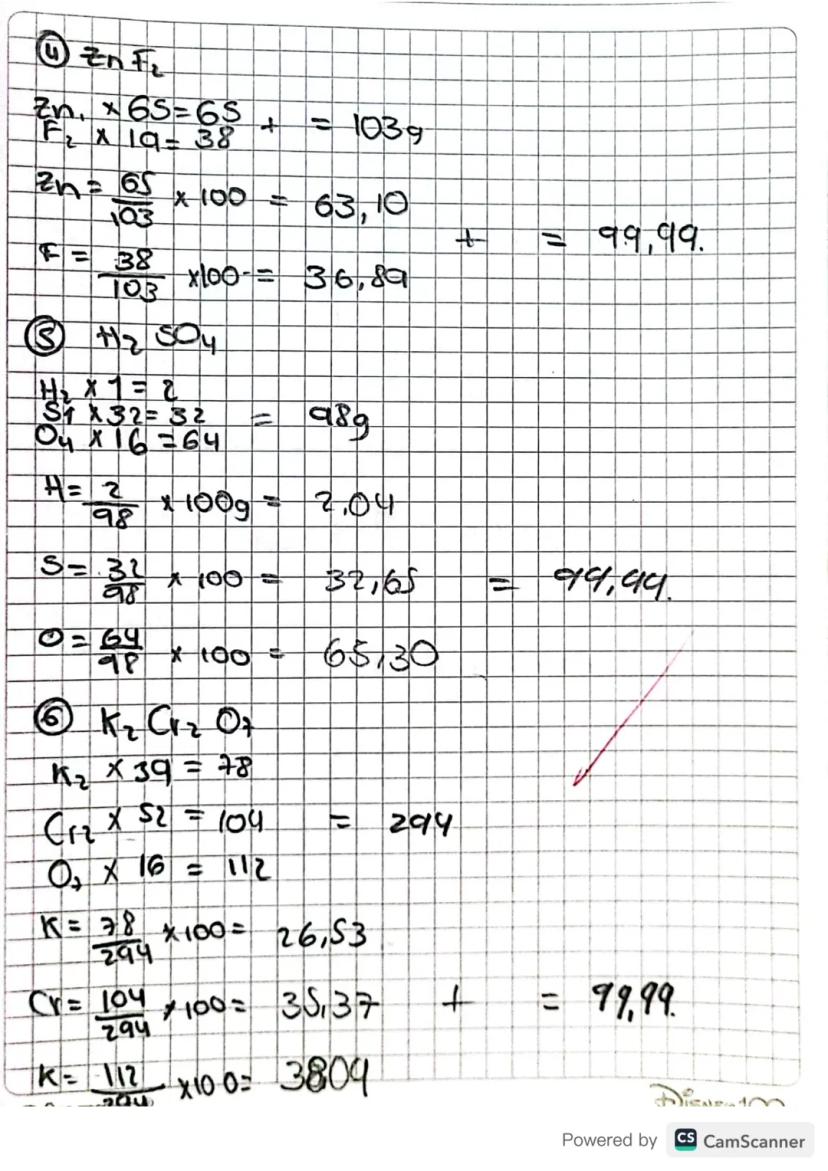 ④ ZnF₂
Zn₁ × 65 = 65
F₂ × 19 = 38 + = 103g
Zn = 65/103 × 100 = 63,10
+ = 99,99.
F = 38/103 × 100 = 36,89
⑤ H₂ SO₄
H₂ × 1 = 2
S1 × 32 = 32 = 98g
O₄ × 16 = 64
H = 2/98 × 100g = 2,04
S = 32/98 × 100 = 32,65 = 99,99.
O = 64/98 × 100 = 65,30
⑥ K₂ Cr₂ O₇
K₂ × 39 = 78
Cr₂ × 52 = 104 = 294
O₇ × 16 = 112
K = 78/294 × 100 = 26,53
Cr = 104/294 × 100 = 35,37 + = 99,99.
K = 112/294 × 100 = 3809
Disney 100
Powered by CS CamScanner